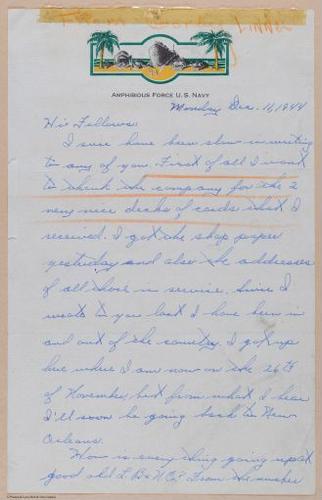 AMPHIBIOUS FORCE U. S. NAVY
Monday Dec. 11, 1944
Hi Fellows:
I sure have been slow in writing
to any of you. First of all I want
to thank the company for the 2
very nice decks of cards that I
received. I got the shop paper
yesterday and also the addresses
of all those in service. Since I
wrote to you last I have been in
and out of the country. I got up
here where I am now on the 26th
of November, but from what I hear
I'll soon be going back to New
Orleans.
How is every thing going up at
good old L. B. & W. Co? From the